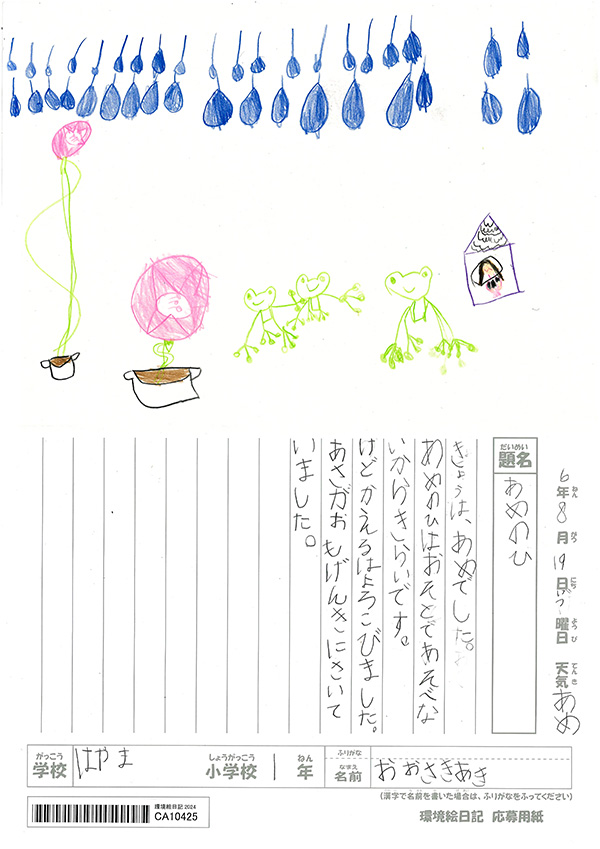 6年ねん8月がつ19日にち げつ曜日ようび 天気てんき あめ
題名だいめい あめのひ
きょうは、あめでした。
あめのひはおそとであそべな
いからきらいです。
けどかえるはよろこびました。
あさがおもげんきにさいて
いました。
学校がっこう はやま 小学校しょうがっこう 1年ねん ふりがな 名前なまえ おおさきあき
(漢字で名前を書いた場合は、ふりがなをふってください)
環境絵日記 2024
CA10425
環境絵日記 応募用紙